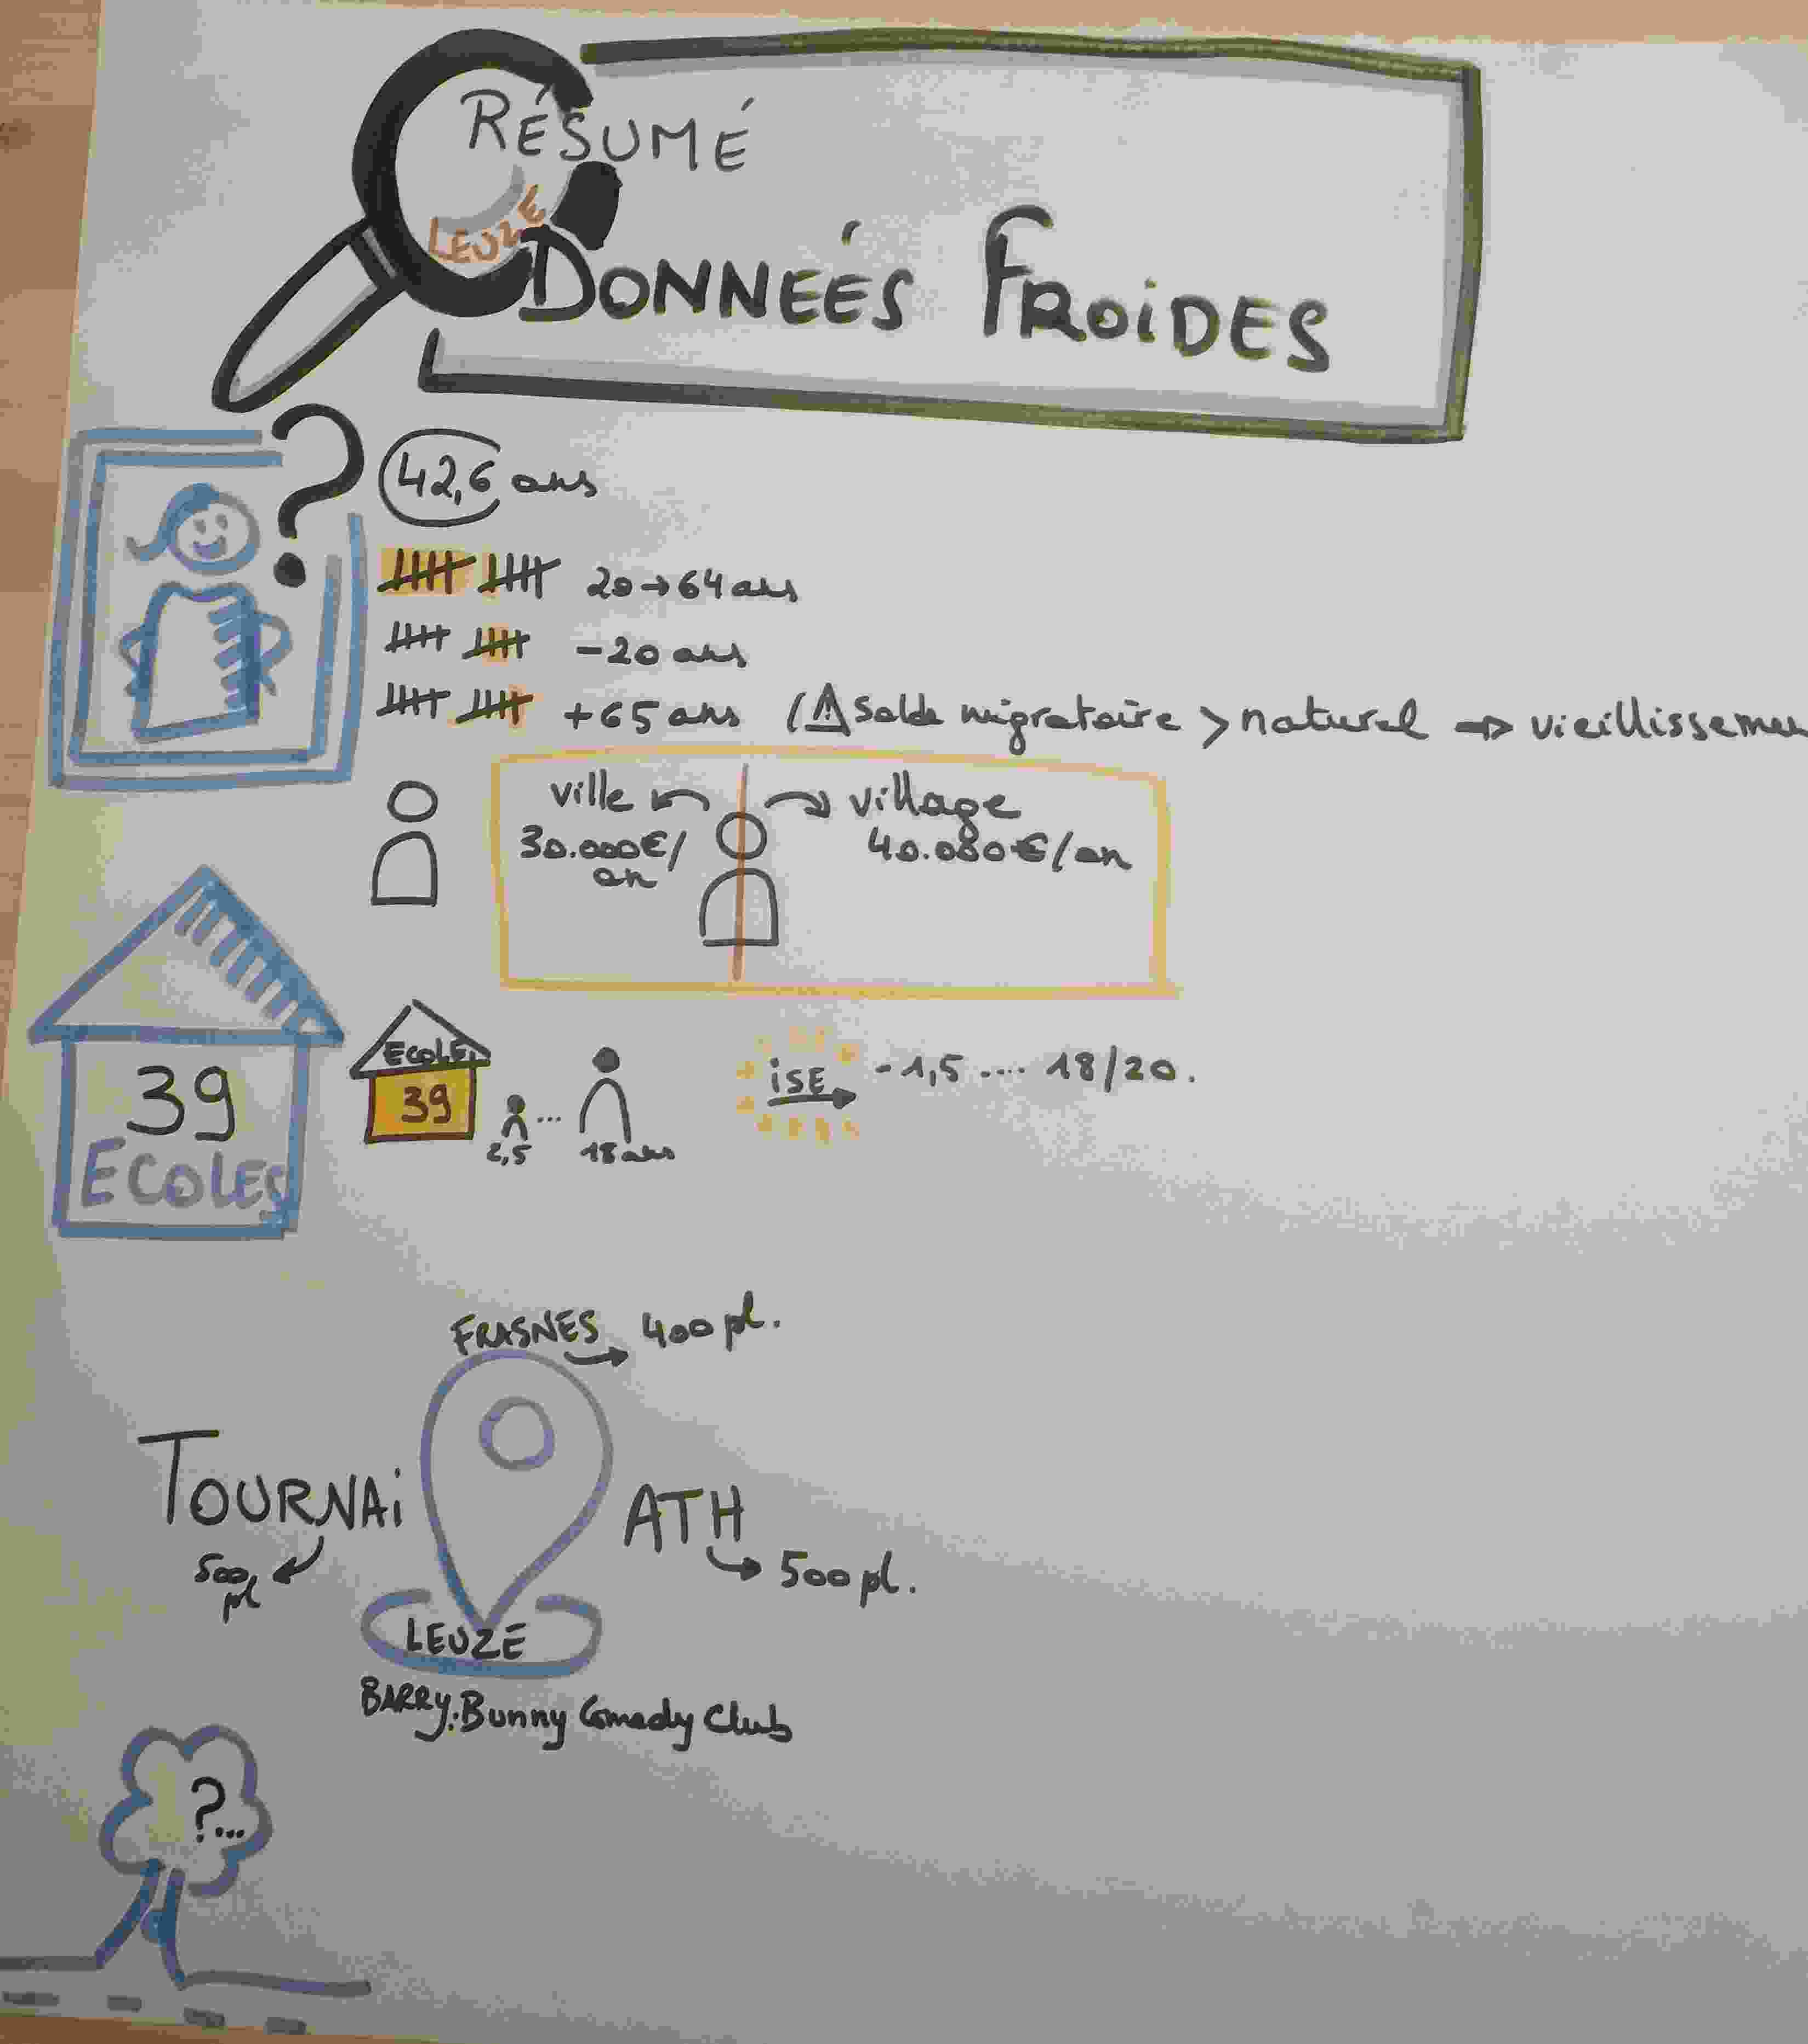 RÉSUMÉ
LEUZE
DONNEÉS FROIDES
?
42,6 ans
20→64 ans
-20 ans
+65 ans (⚠ Solde migratoire > naturel ⇒ vieillissemen
ville
village
30.000€/
an
40.000€/an
39
ECOLES
ECOLES
39
2,5 ... 18 ans
iSE → -1,5 .... 18/20.
FRASNES → 400 pl.
TOURNAi
500
pl
ATH
→ 500 pl.
LEUZE
BARRY. Bunny Comedy Club
?...